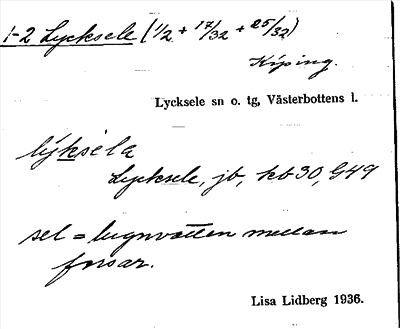 1-2 Lycksele (1/2 + 17/32 + 25/32)
Köping.
Lycksele sn o. tg, Västerbottens l.
lýksèla
Lycksele, jb, kb 30, G49
sel = lugnvatten mellan
forsar.
Lisa Lidberg 1936.